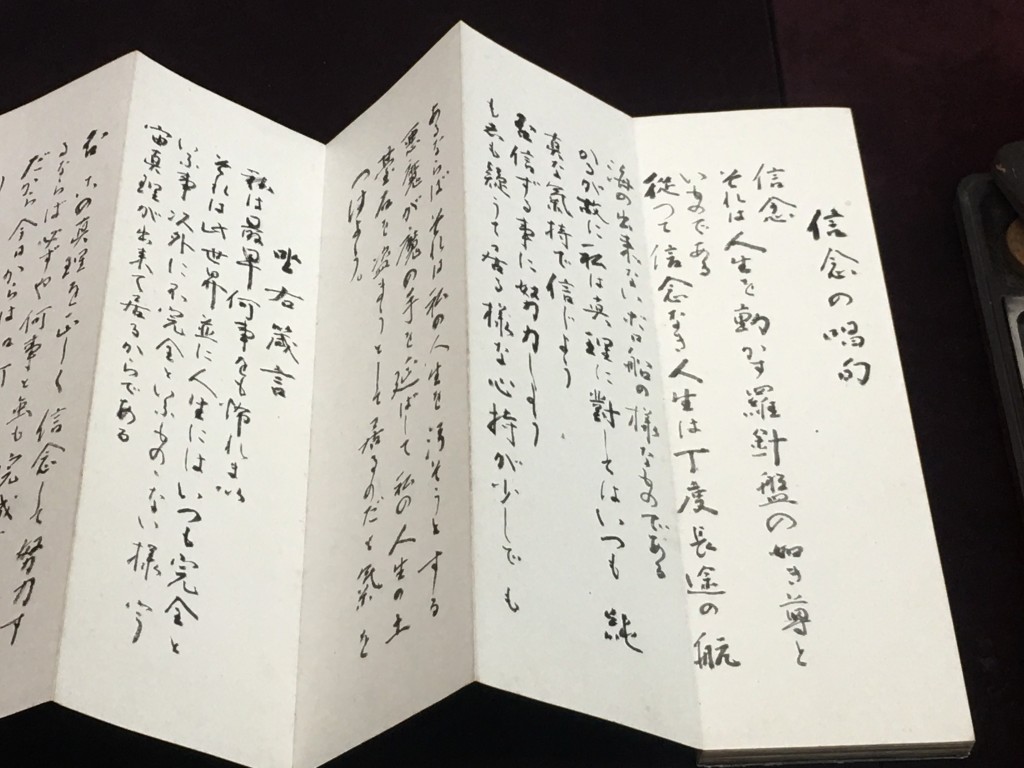 信念の唱句
信念
それは人生を動かす羅針盤の如き尊と
いものである
従つて信念なき人生は丁度長途の航
海の出来ないボロ船の様なものである
かるが故に私は真理に対してはいつも純
真な気持で信じよう
否信ずる事に努力しよう
もしも疑うて居る様な心持が少しでも
あるならばそれは私の人生を汚そうとする
悪魔が魔の手を延ばして私の人生の土
台石を盗まうとして居るのだと気を
つけよう
坐右箴言
私は最早何事をも怖れまい
それは此世界並に人生にはいつも完全と
いふ事以外に不完全といふものゝない様宇
宙真理が出来て居るからである
否此の真理を正しく信念して努力す
るならば必ずや何事と雖も完成
だから今日からは